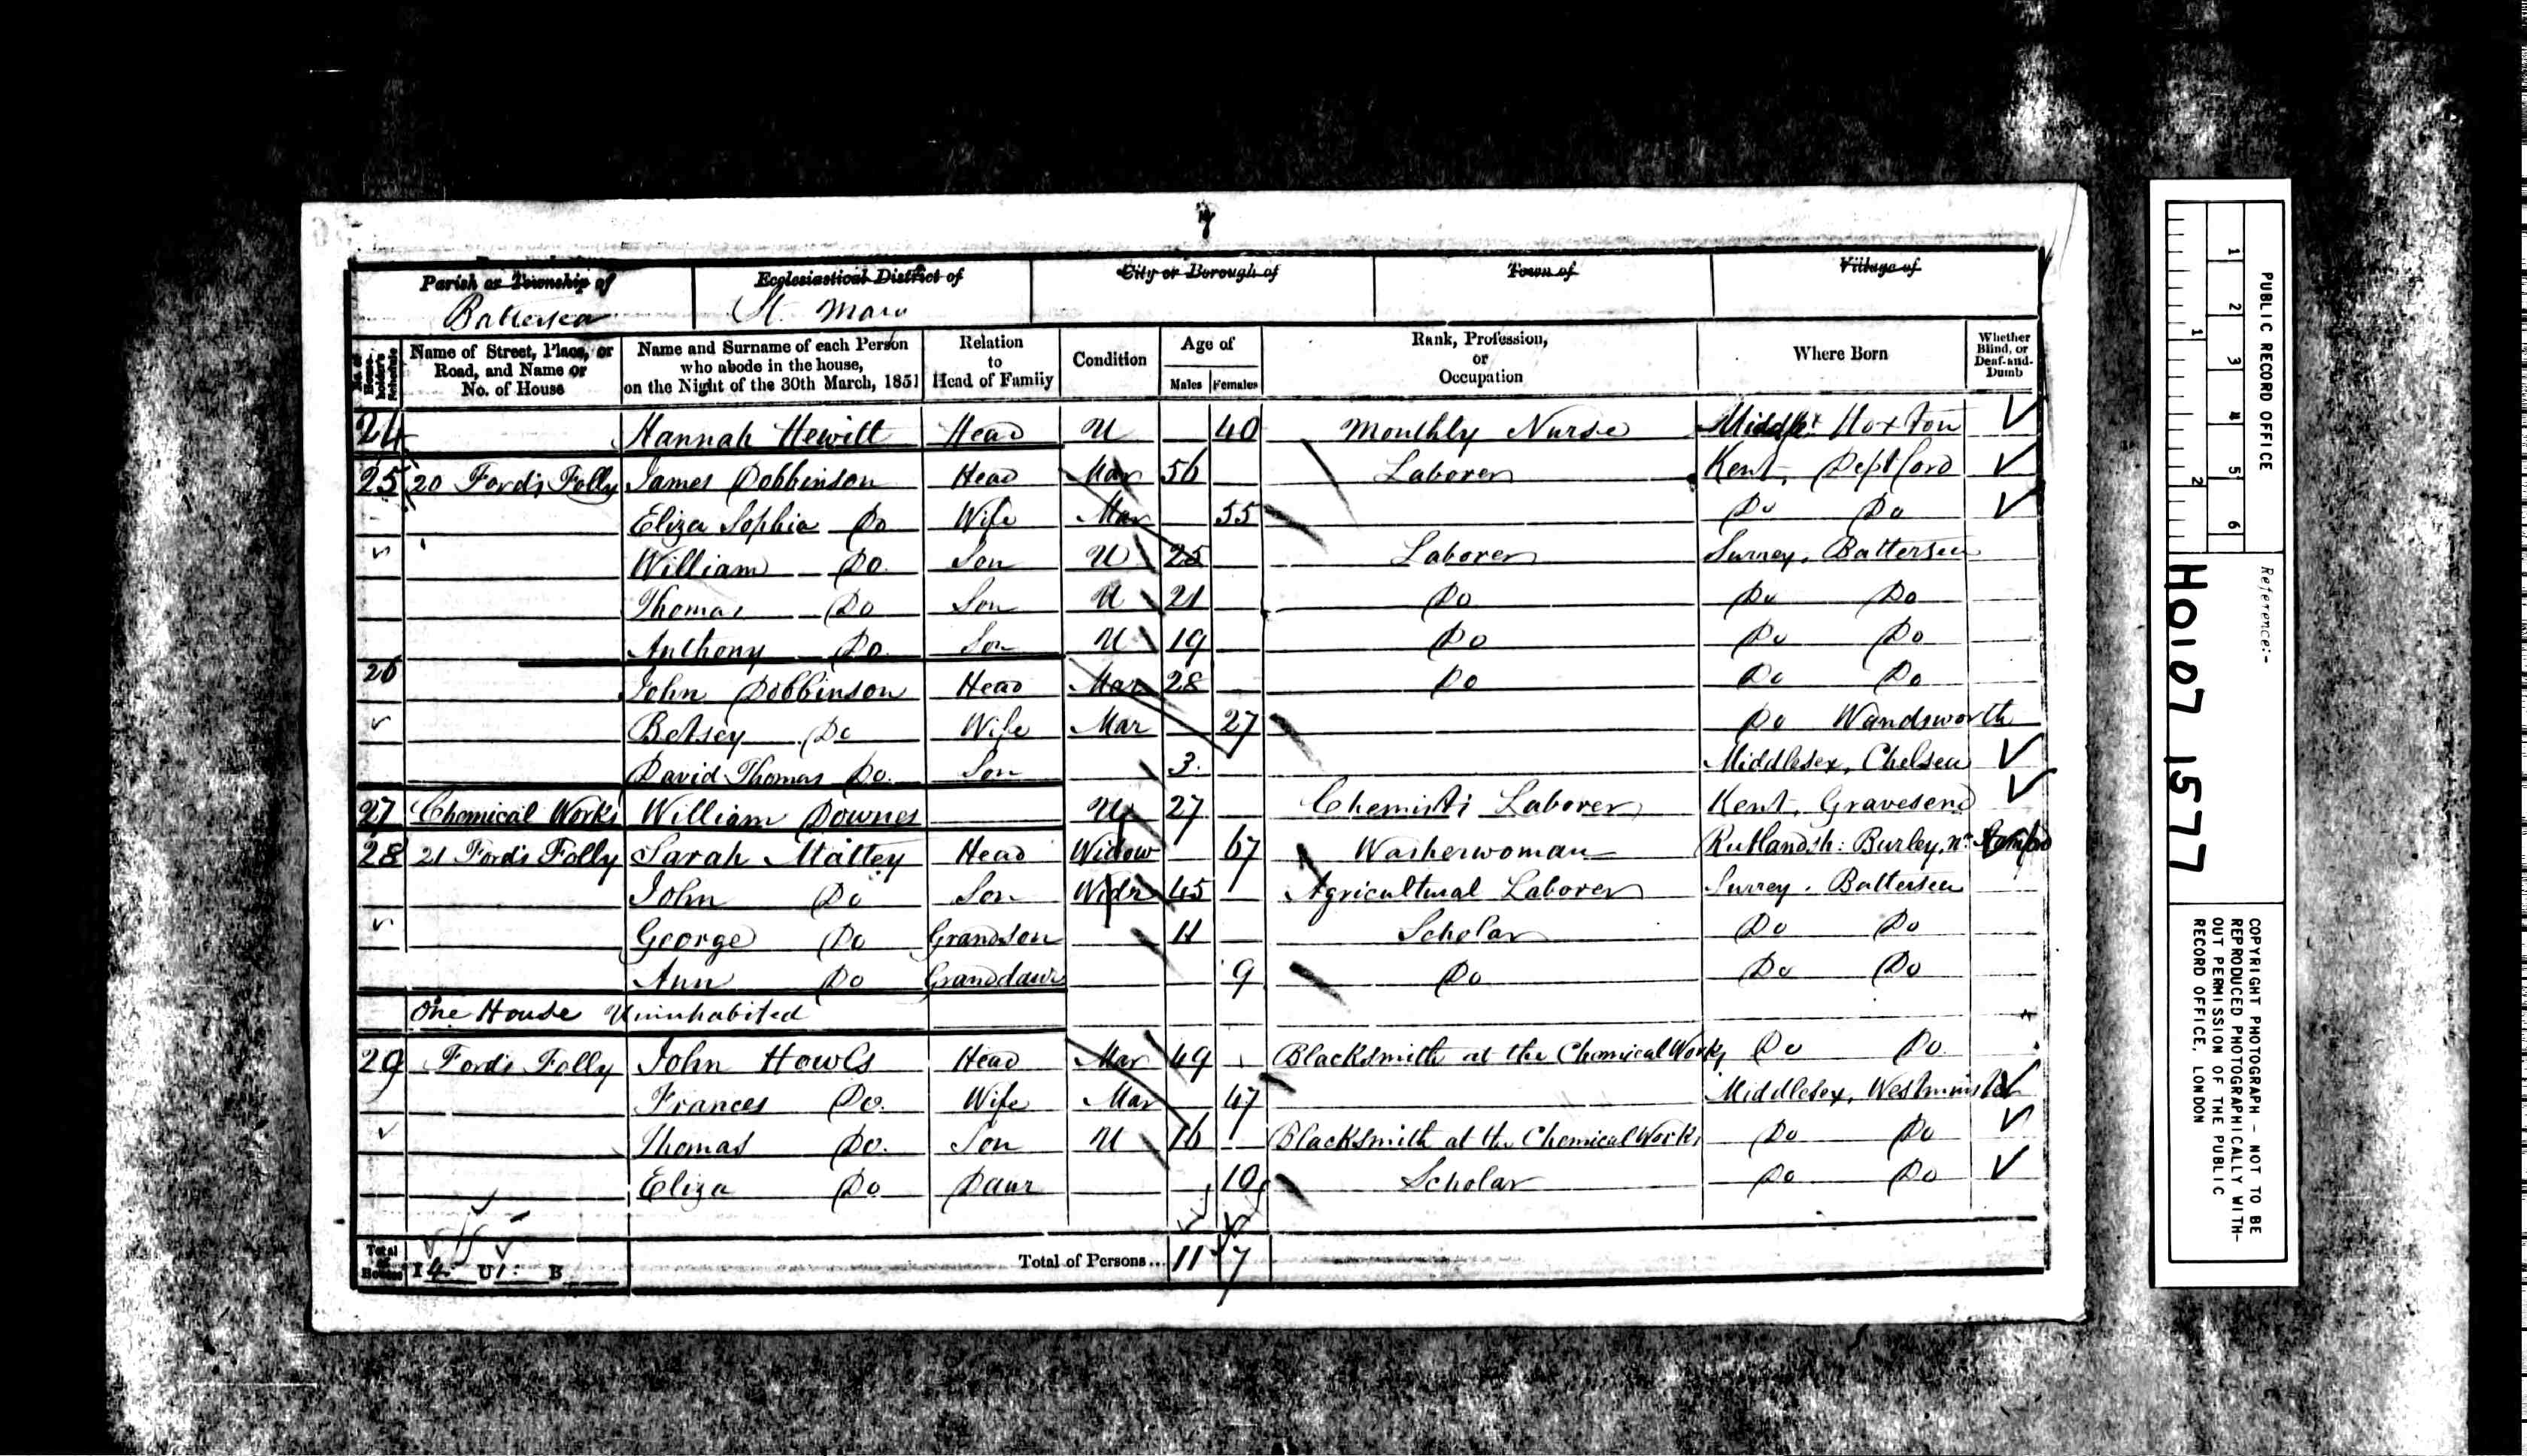 7
Parish or Township of
Battersea
Ecclesiastical District of
St. Mary
City or Borough of
Town of
Village of
Name of Street, Place, or Road, and Name or No. of House
Name and Surname of each Person who abode in the house, on the Night of the 30th March, 1851
Relation to Head of Family
Condition
Age of
Males Females
Rank, Profession, or Occupation
Where Born
Whether Blind, or Deaf-and-Dumb
24 Hannah Hewitt Head U 40 Monthly Nurse Middlx Hoxton
25 20 Ford's Folly James Dobbinson Head Mar 56 Laborer Kent, Deptford
Eliza Sophia Do Wife Mar 55 Do Do
William Do. Son U 25 Laborer Surrey, Battersea
Thomas Do Son U 21 Do Do Do
Anthony Do. Son U 19 Do Do Do
26 John Dobbinson Head Mar 28 Do Do Do
Betsey Do Wife Mar 27 Do Wandsworth
David Thomas Do. Son 3 Middlesex, Chelsea
27 Chemical Works William Downes U 27 Chemist's Laborer Kent, Gravesend
28 21 Ford's Folly Sarah Mattey Head Widow 67 Washerwoman Rutlandsh: Burley, nr
John Do Son Widr 45 Agricultural Laborer Surrey, Battersea
George Do Grandson 11 Scholar Do Do
Ann Do Granddaur 9 Do Do Do
One House Uninhabited
29 Ford's Folly John Howls Head Mar 49 Blacksmith at the Chemical Works Do Do.
Frances Do. Wife Mar 47 Middlesex, Westminster
Thomas Do. Son U 16 Blacksmith at the Chemical Works Do Do
Eliza Do Daur 10 Scholar Do Do
Total of Houses I 4 U 1 B
Total of Persons... 11 7
PUBLIC RECORD OFFICE
1 2 3 4 5 6
1 2
Reference:-
HO107 1577
COPYRIGHT PHOTOGRAPH - NOT TO BE
REPRODUCED PHOTOGRAPHICALLY WITH-
OUT PERMISSION OF THE PUBLIC
RECORD OFFICE, LONDON